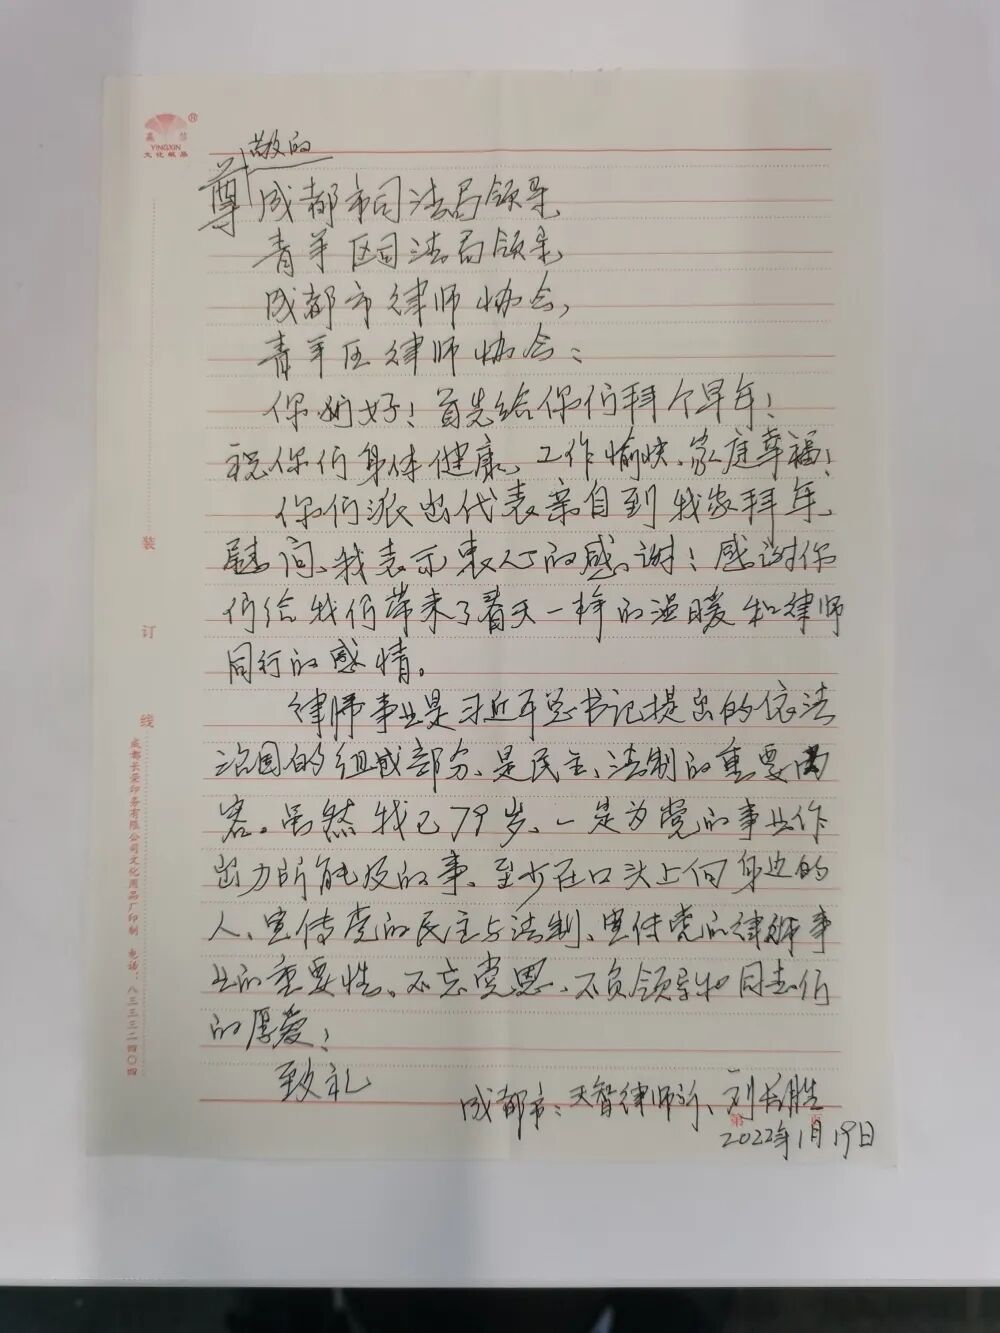 嘉兴
YINGXIN
文化纸品
尊敬的
成都市司法局领导
青羊区司法局领导
成都市律师协会,
青羊区律师协会:
你们好!首先给你们拜个早年!
祝你们身体健康、工作愉快、家庭幸福!
你们派出代表亲自到我家拜年
慰问、我表示衷心的感谢!感谢你
们给我们带来了春天一样的温暖和律师
同行的感情。
律师事业是习近平总书记提出的依法
治国的组成部分、是民主、法制的重要内
容。虽然我已79岁、一定为党的事业作
出力所能及的事、至少在口头上向身边的
人、宣传党的民主与法制、宣传党的律师事
业的重要性。不忘党恩、不负领导和同志们
的厚爱!
致礼
成都市:天智律师所、刘长胜
2022年1月19日
第 页
装
订
线
成都长荣印务有限公司文化用品厂印制 电话:八三三三二四〇四